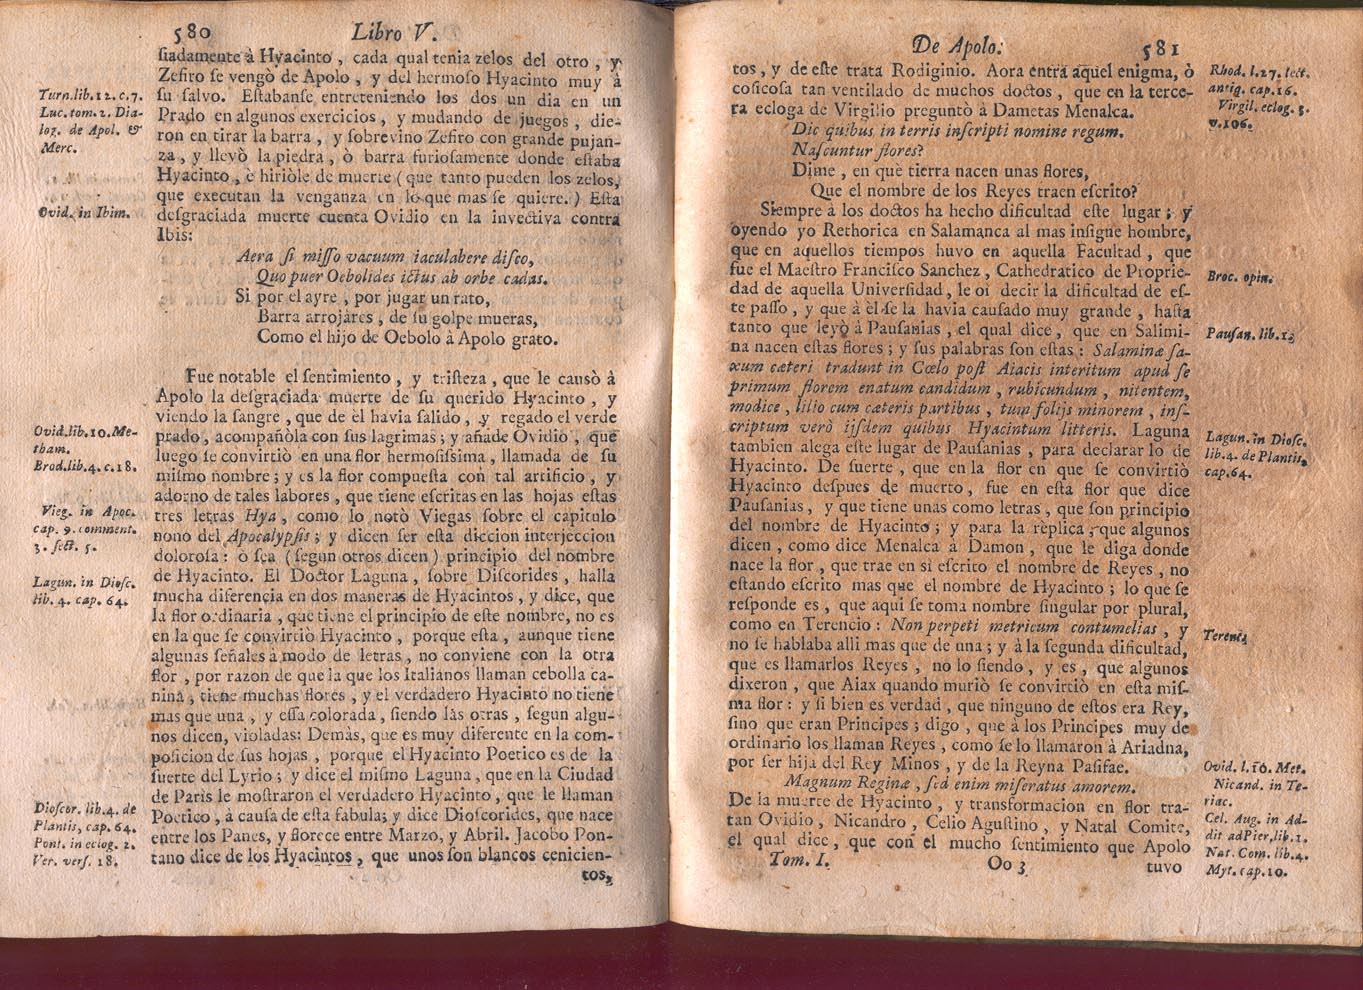 580 Libro V.
siadamente à Hyacinto, cada qual tenia zelos del otro, y
Zefiro se vengò de Apolo, y del hermoso Hyacinto muy à
su salvo. Estabanse entreteniendo los dos un dia en un
Prado en algunos exercicios, y mudando de juegos, die-
ron en tirar la barra, y sobrevino Zefiro con grande pujan-
za, y llevò la piedra, ò barra furiosamente donde estaba
Hyacinto, è hiriòle de muerte (que tanto pueden los zelos,
que executan la venganza en lo que mas se quiere.) Esta
desgraciada muerte cuenta Ovidio en la invectiva contra
Ibis:
Aera si misso vacuum iaculabere disco,
Quo puer Oebolides ictus ab orbe cadas.
Si por el ayre, por jugar un rato,
Barra arrojàres, de su golpe mueras,
Como el hijo de Oebolo à Apolo grato.
Fue notable el sentimiento, y tristeza, que le causò à
Apolo la desgraciada muerte de su querido Hyacinto, y
viendo la sangre, que de èl havia salido, y regado el verde
prado, acompañòla con sus lagrimas; y añade Ovidio, que
luego se convirtiò en una flor hermosissima, llamada de su
mismo nombre; y es la flor compuesta con tal artificio, y
adorno de tales labores, que tiene escritas en las hojas estas
tres letras Hya, como lo notò Viegas sobre el capitulo
nono del Apocalypsis; y dicen ser esta diccion interjeccion
dolorosa: ò sea (segun otros dicen) principio del nombre
de Hyacinto. El Doctor Laguna, sobre Discorides, halla
mucha diferencia en dos maneras de Hyacintos, y dice, que
la flor ordinaria, que tiene el principio de este nombre, no es
en la que se convirtiò Hyacinto, porque esta, aunque tiene
algunas señales à modo de letras, no conviene con la otra
flor, por razon de que la que los Italianos llaman cebolla ca-
nina, tiene muchas flores, y el verdadero Hyacinto no tiene
mas que una, y essa colorada, siendo làs otras, segun algu-
nos dicen, violadas: Demàs, que es muy diferente en la com-
posicion de sus hojas, porque el Hyacinto Poetico es de la
suerte del Lyrio; y dice el mismo Laguna, que en la Ciudad
de Paris le mostraron el verdadero Hyacinto, que le llaman
Poetico, à causa de esta fabula; y dice Dioscorides, que nace
entre los Panes, y florece entre Marzo, y Abril. Jacobo Pon-
tano dice de los Hyacintos, que unos son blancos cenicien-
tos,
Turn.lib.12.c.7.
Luc.tom.2. Dia-
log. de Apol. &
Merc.
Ovid. in Ibim.
Ovid.lib.10.Me-
tham.
Brod.lib.4.c.18.
Vieg. in Apoc.
cap. 9. comment.
3. sect. 5.
Lagun. in Diosc.
lib. 4. cap. 64.
Dioscor. lib.4. de
Plantis, cap. 64.
Pont. in eclog. 2.
Ver. vers. 18.
De Apolo. 581
tos, y de este trata Rodiginio. Aora entra aquel enigma, ò
cosicosa tan ventilado de muchos doctos, que en la terce-
ra ecloga de Virgilio preguntò à Dametas Menalca.
Dic quibus in terris inscripti nomine regum.
Nascuntur flores?
Dime, en què tierra nacen unas flores,
Que el nombre de los Reyes traen escrito?
Siempre à los doctos ha hecho dificultad este lugar; y
oyendo yo Rethorica en Salamanca al mas insigne hombre,
que en aquellos tiempos huvo en aquella Facultad, que
fue el Maestro Francisco Sanchez, Cathedratico de Proprie-
dad de aquella Universidad, le oì decir la dificultad de es-
te passo, y que à èl se la havia causado muy grande, hasta
tanto que leyò à Pausanias, el qual dice, que en Salimi-
na nacen estas flores; y sus palabras son estas: Salaminæ sa-
xum cæteri tradunt in Cœlo post Aiacis interitum apud se
primum florem enatum candidum, rubicundum, nitentem,
modice, lilio cum cæteris partibus, tum folijs minorem, ins-
criptum verò iisdem quibus Hyacintum litteris. Laguna
tambien alega este lugar de Pausanias, para declarar lo de
Hyacinto. De suerte, que en la flor en que se convirtiò
Hyacinto despues de muerto, fue en esta flor que dice
Pausanias, y que tiene unas como letras, que son principio
del nombre de Hyacinto; y para la rèplica, que algunos
dicen, como dice Menalca à Damon, que le diga donde
nace la flor, que trae en sì escrito el nombre de Reyes, no
estando escrito mas que el nombre de Hyacinto; lo que se
responde es, que aqui se toma nombre singular por plural,
como en Terencio: Non perpeti metricum contumelias, y
no se hablaba alli mas que de una; y à la segunda dificultad,
que es llamarlos Reyes, no lo siendo, y es, que algunos
dixeron, que Aiax quando muriò se convirtiò en esta mis-
ma flor: y si bien es verdad, que ninguno de estos era Rey,
sino que eran Principes; digo, que à los Principes muy de
ordinario los llaman Reyes, como se lo llamaron à Ariadna,
por ser hija del Rey Minos, y de la Reyna Pasifae.
Magnum Reginæ, sed enim miseratus amorem.
De la muerte de Hyacinto, y transformacion en flor tra-
tan Ovidio, Nicandro, Celio Agustino, y Natal Comite,
el qual dice, que con el mucho sentimiento que Apolo
Tom. I. Oo 3 tuvo
Rhod. l.27. lect.
antiq. cap.16.
Virgil. eclog. 3.
v.106.
Broc. opin.
Pausan. lib.1.
Lagun. in Diosc.
lib.4. de Plantis,
cap.64.
Terent.
Ovid. l.10. Met.
Nicand. in Te-
riac.
Cel. Aug. in Ad-
dit adPier.lib.1.
Nat. Com. lib.4.
Myt. cap.10.